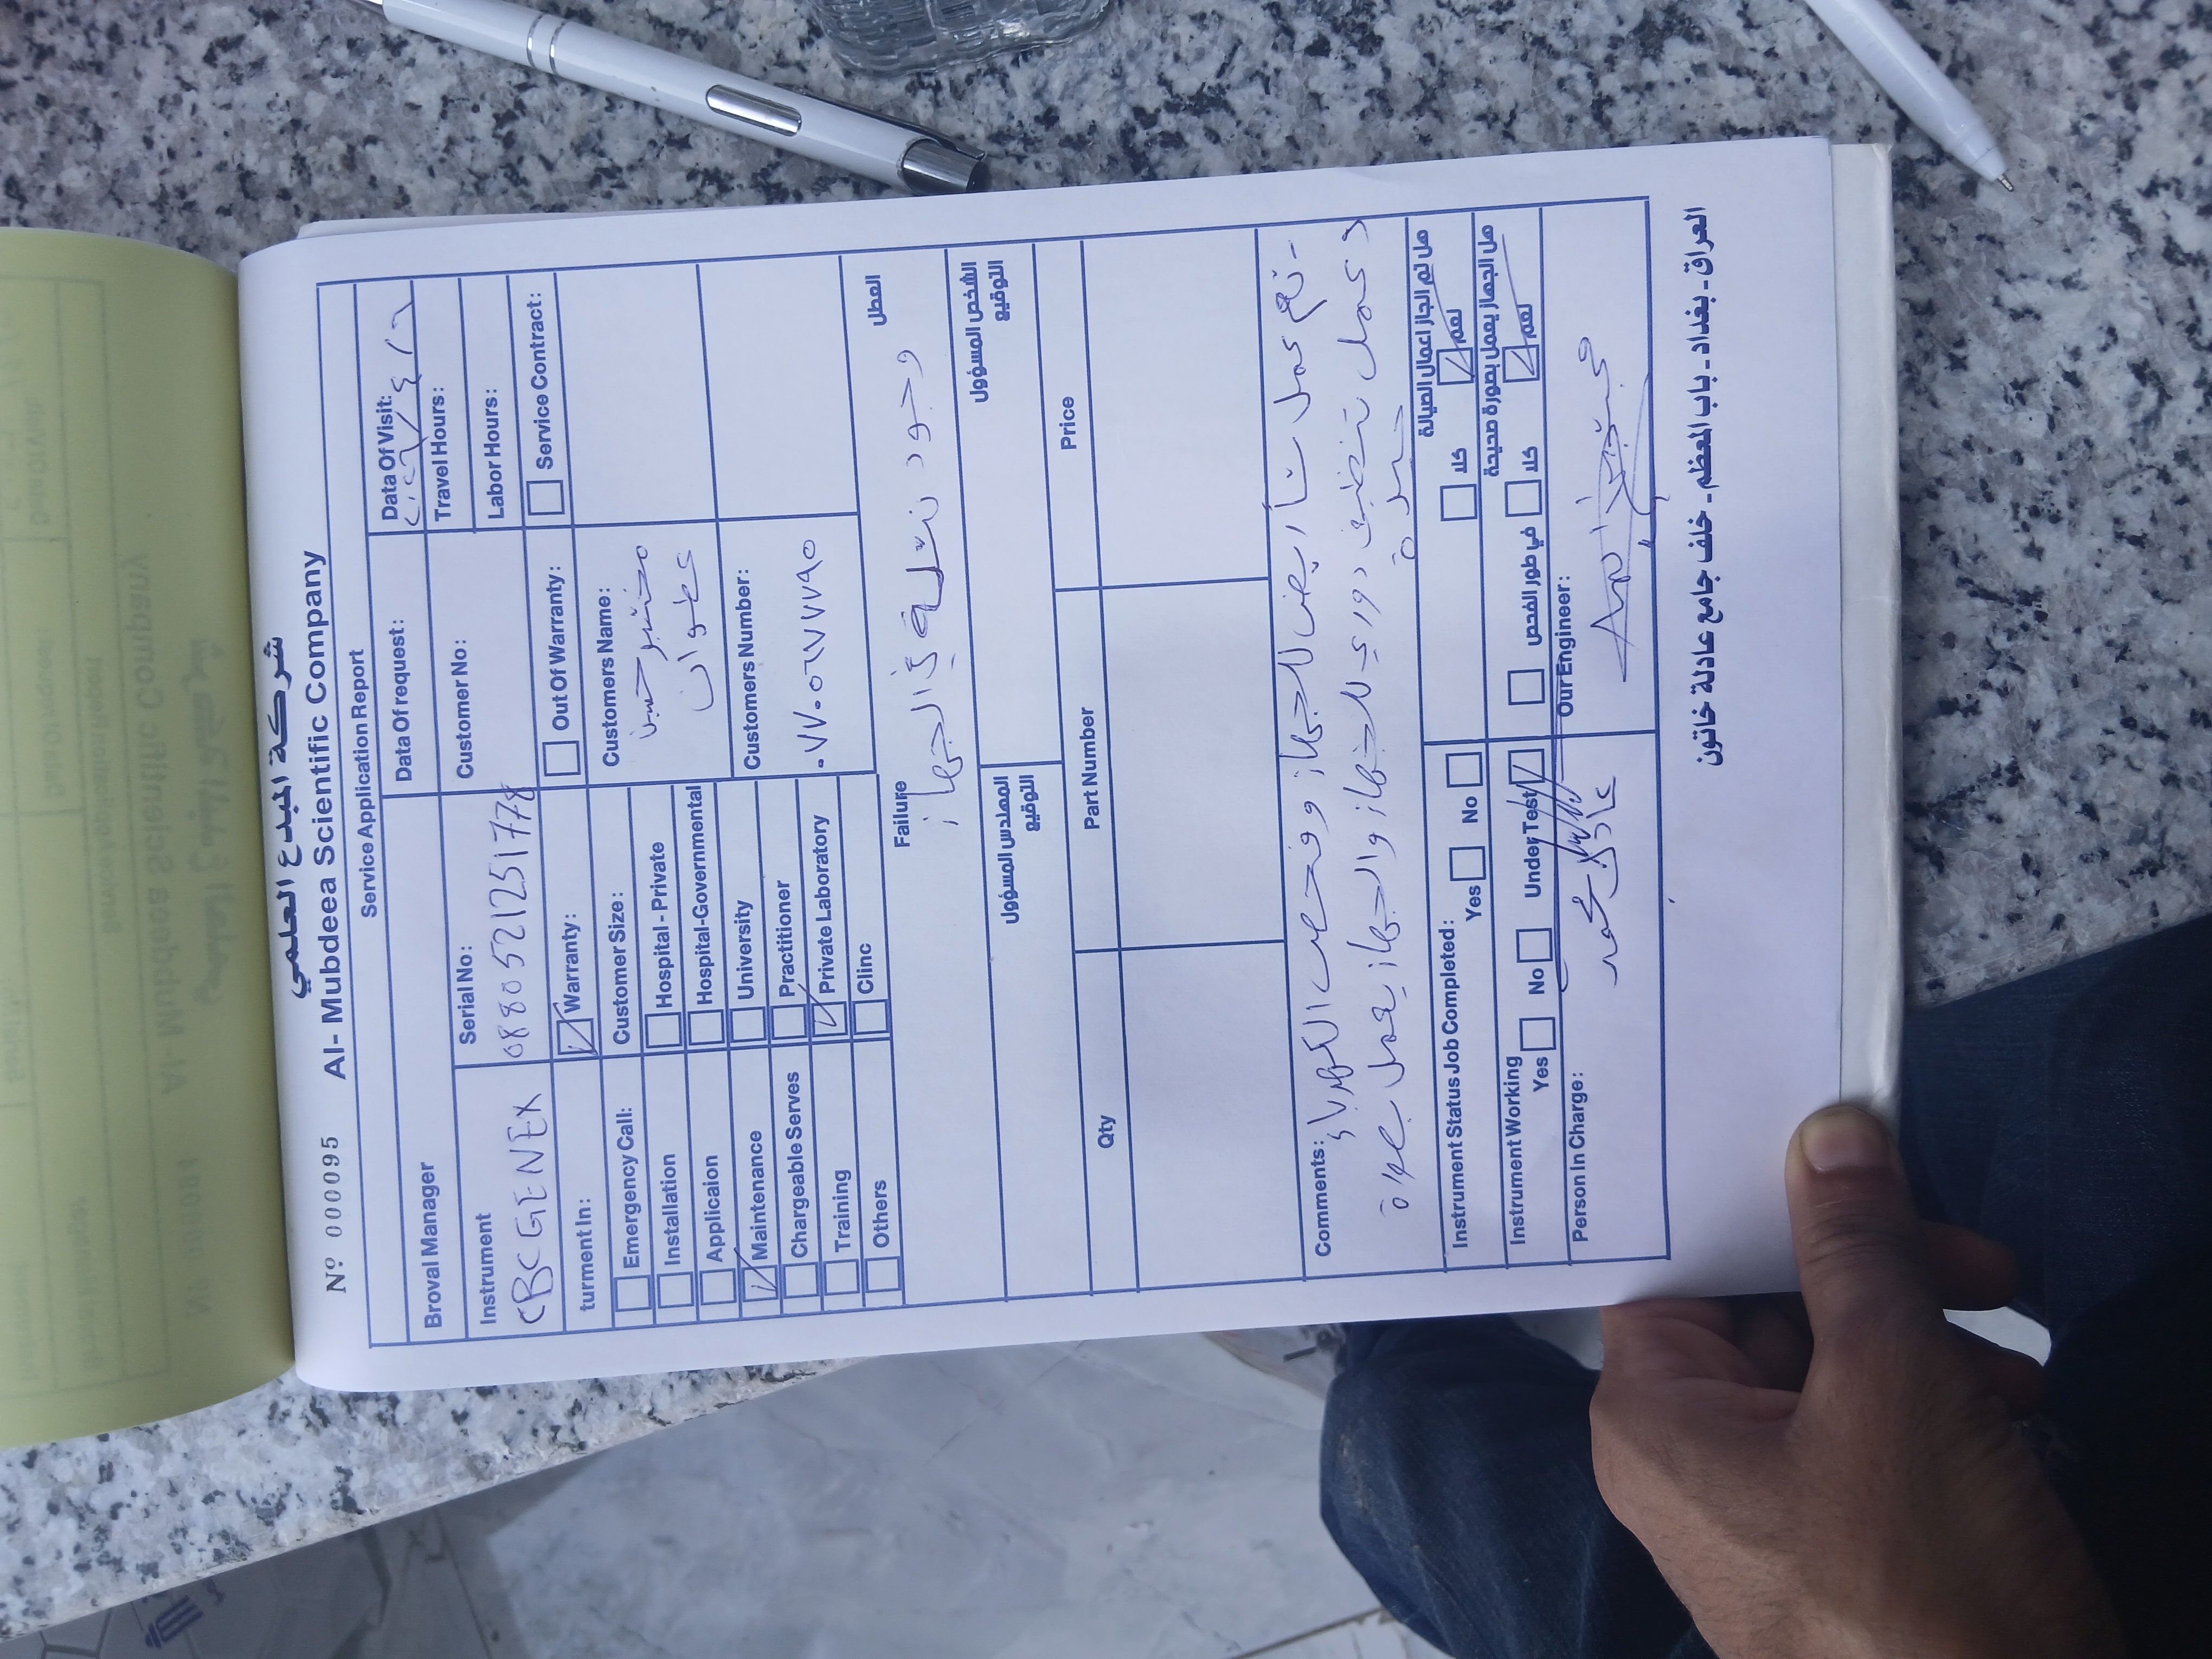 شركة المبدع العلمي
Nº 000095 Al- Mubdeea Scientific Company
Service Application Report
Broval Manager
Data Of request:
Data Of Visit:
Travel Hours:
Instrument
CBC GENEX
Serial No:
0880521251778
Customer No:
Labor Hours:
turment In:
Warranty:
Out Of Warranty:
Service Contract:
Emergency Call:
Installation
Applicaion
Maintenance
Chargeable Serves
Training
Others
Customer Size:
Hospital - Private
Hospital-Governmental
University
Practitioner
Private Laboratory
Clinc
Customers Name:
مختبر حسين
علوان
Customers Number:
Failure
العطل
وجود مشكلة في الجهاز
المهندس المسؤول
التوقيع
الشخص المسؤول
التوقيع
Qty
Part Number
Price
Comments:
- تم عمل ستارت بعض للجهاز وفحص الكهرباء
وعمل تنظيف دوري للجهاز والجهاز يعمل بصورة
جيدة
Instrument Status Job Completed:
Yes No
هل تم انجاز اعمال الصيانة
كلا نعم
Instrument Working
Yes No Under Test
هل الجهاز يعمل بصورة صحيحة
في طور الفحص كلا نعم
Person In Charge:
Our Engineer:
العراق - بغداد - باب المعظم - خلف جامع عادلة خاتون